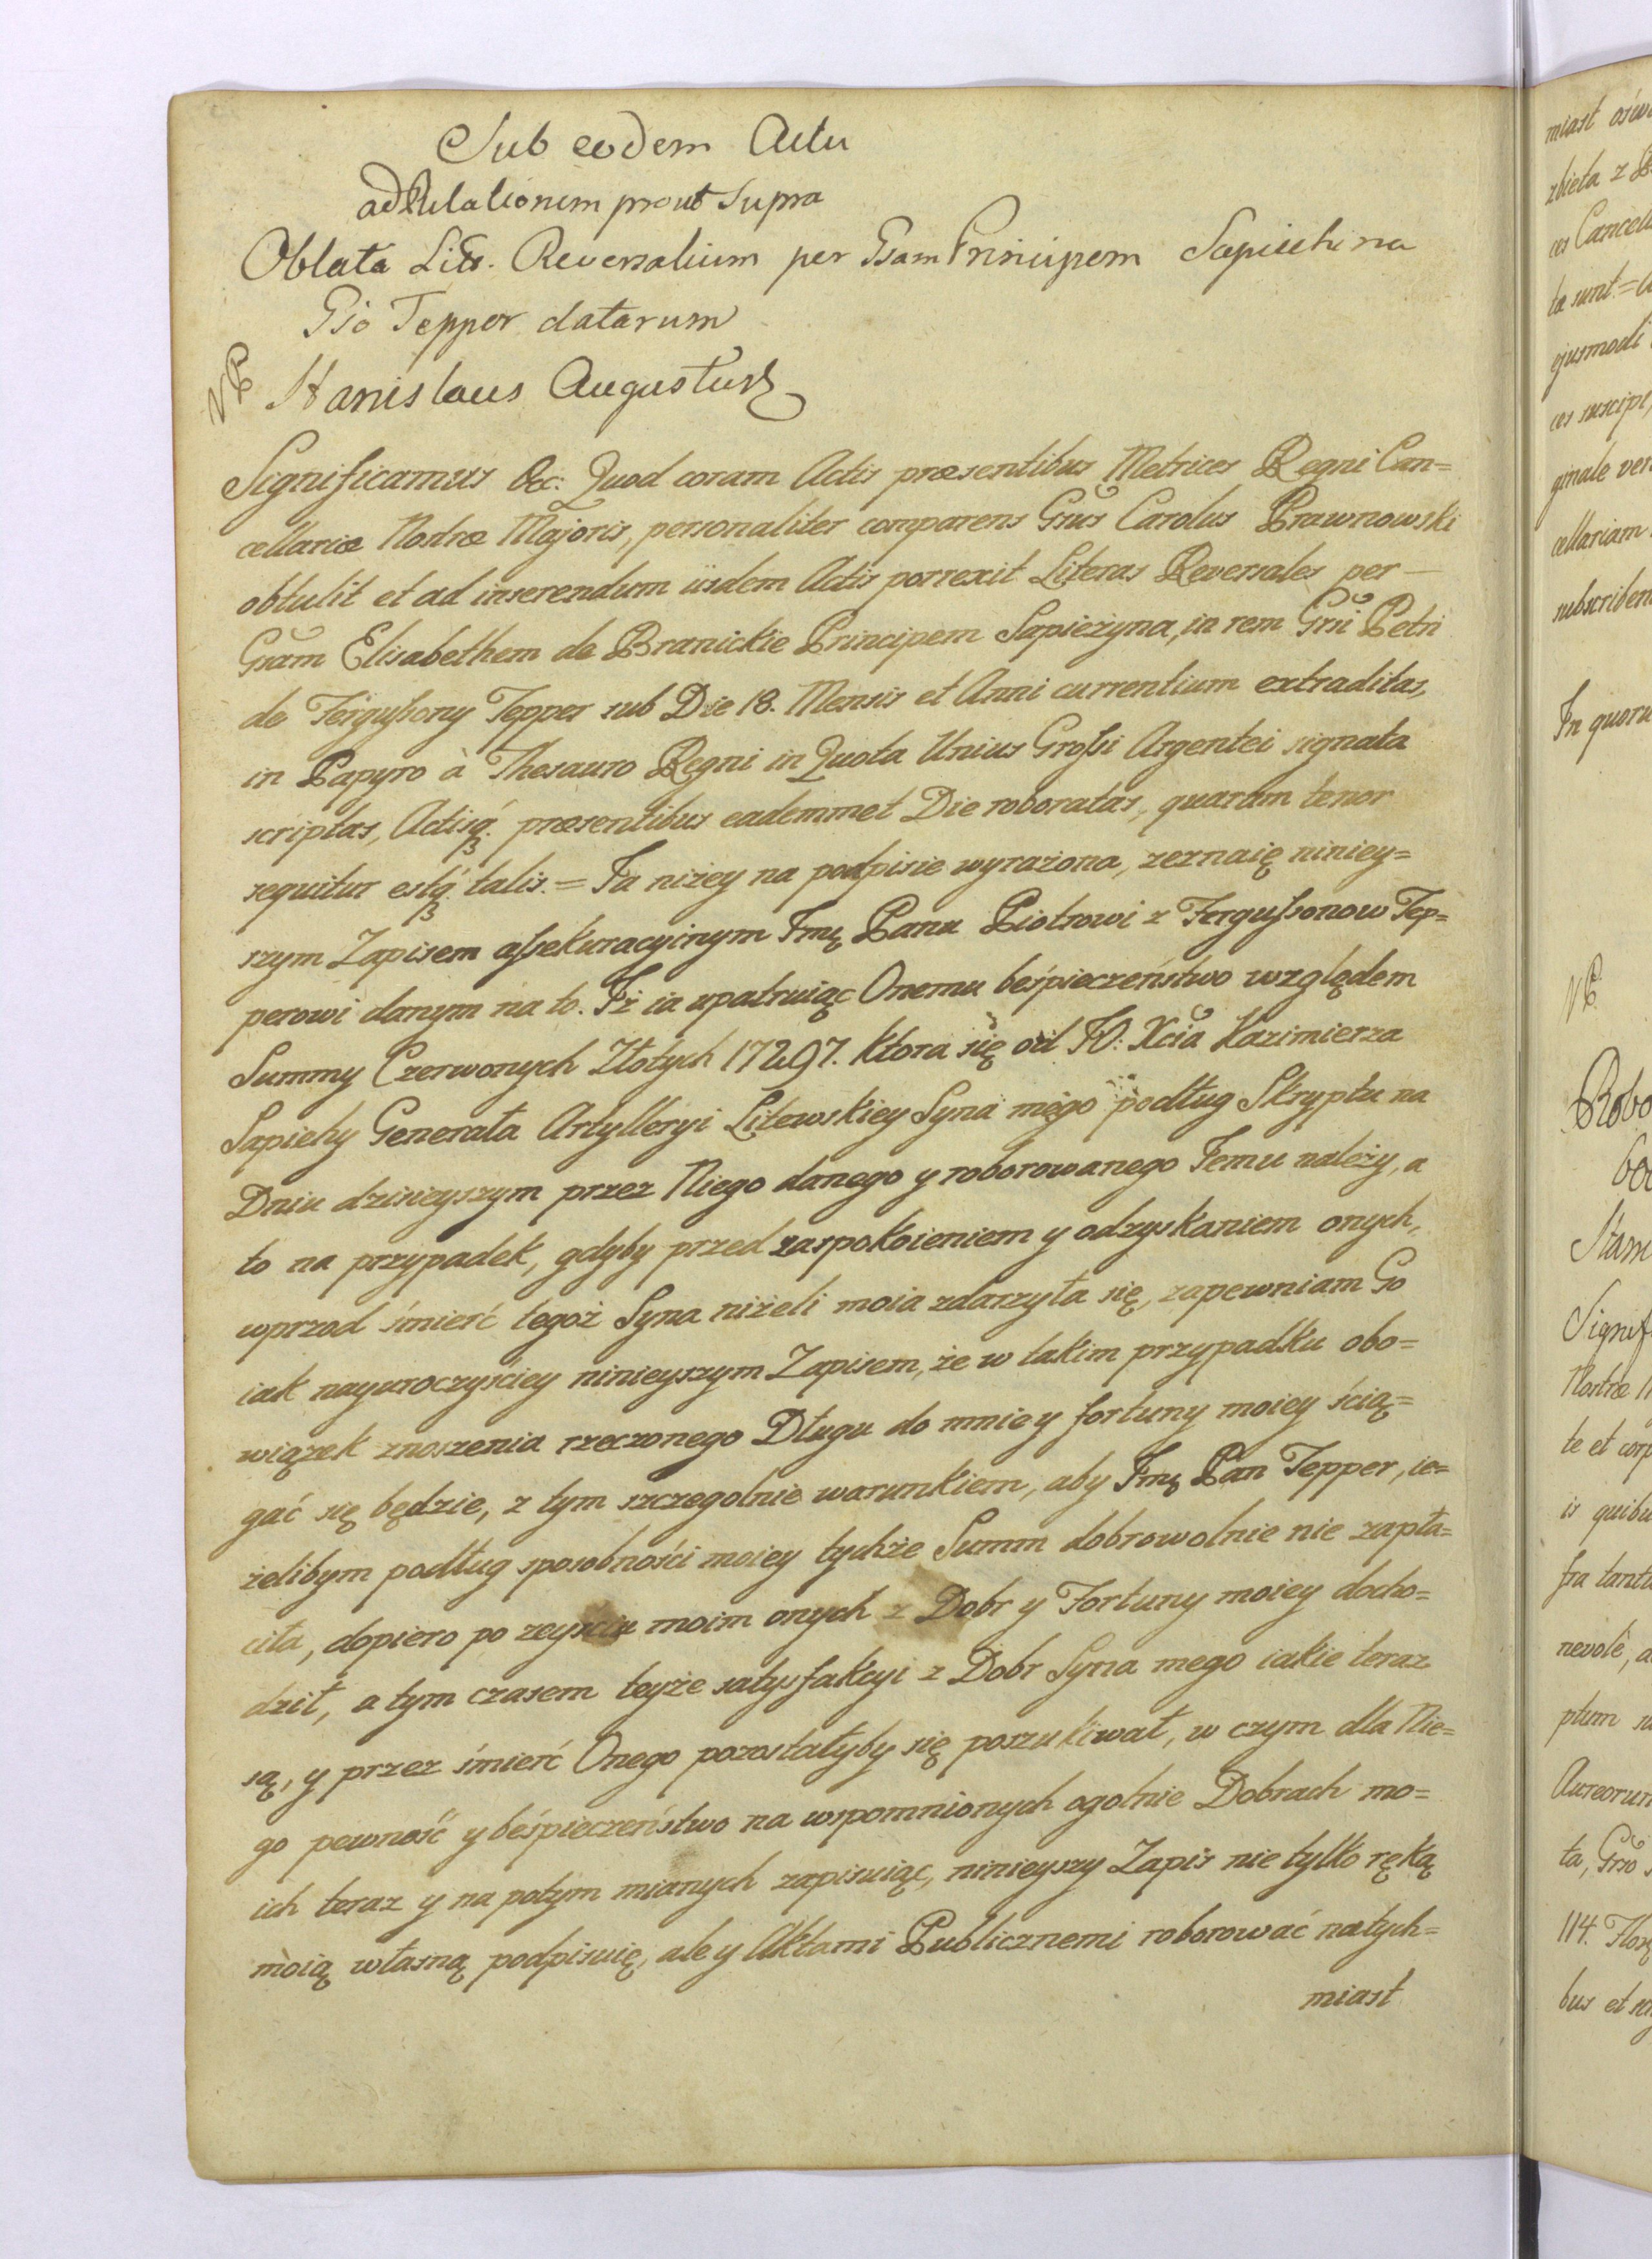 Sub eodem Actu
ad Relationem prout Supra
Oblata Litt. Reversalium per Gsam Principem Sapiehina
Gso Tepper datarum
Stanislaus Augustus
Significamus &c: Quod coram Actis præsentibus Metrices Regni Can=
cellariæ Nostræ Majoris, personaliter comparens Gsus Carolus Prawnowski
obtulit et ad inserendum iisdem Actis porrexit Literas Reversales per
Gsam Elisabethem de Branickie Principem Sapieżyna, in rem Gsi Petri
de Fergussony Tepper sub Die 18. Mensis et Anni currentium extraditas,
in Papyro à Thesauro Regni in Quota Unius Grossi Argentei signata
scriptas, Actisq́. præsentibus eademmet Die roboratas, quarum tenor
sequitur estq́. talis. = Ja niżey na podpisie wyrażona, zeznaię niniey=
szym Zapisem assekuracyinym Jmę Panu Piotrowi z Fergussonow Tep=
perowi danym na to. Iż ia upatruiąc Onemu beśpieczeństwo względem
Summy Czerwonych Złotych 17297. Ktora się od JO: Xcia Kazimierza
Sapiehy Generała Artylleryi Litewskiey Syna mego podług Skryptu na
Dniu dzisieyszym przez Niego danego y roborowanego Jemu należy, a
to na przypadek, gdyby przed zaspokoieniem y odzyskaniem onych,
wprzod śmierć tegoż Syna niżeli moia zdarzyła się, zapewniam Go
iak nayuroczyściey ninieyszym Zapisem, że w takim przypadku obo=
wiązek znoszenia rzeczonego Długu do mnie y fortuny moiey ścią=
gać się będzie, z tym szczegolnie warunkiem, aby Jmę Pan Tepper, ie=
żelibym podług sposobności moiey tychże Summ dobrowolnie nie zapła=
ciła, dopiero po zeyściu moim onych z Dobr y Fortuny moiey docho=
dził, a tym czasem teyże satysfakcyi z Dobr Syna mego iakie teraz
są, y przez śmierć Onego pozostałyby się poszukiwał, w czym dla Nie=
go pewność y beśpieczeństwo na wspomnionych ogolnie Dobrach mo=
ich teraz y na potym mianych zapisuiąc, ninieyszy Zapis nie tylko ręką
moią własną podpisuię, ale y Aktami Publicznemi roborować natych=
miast